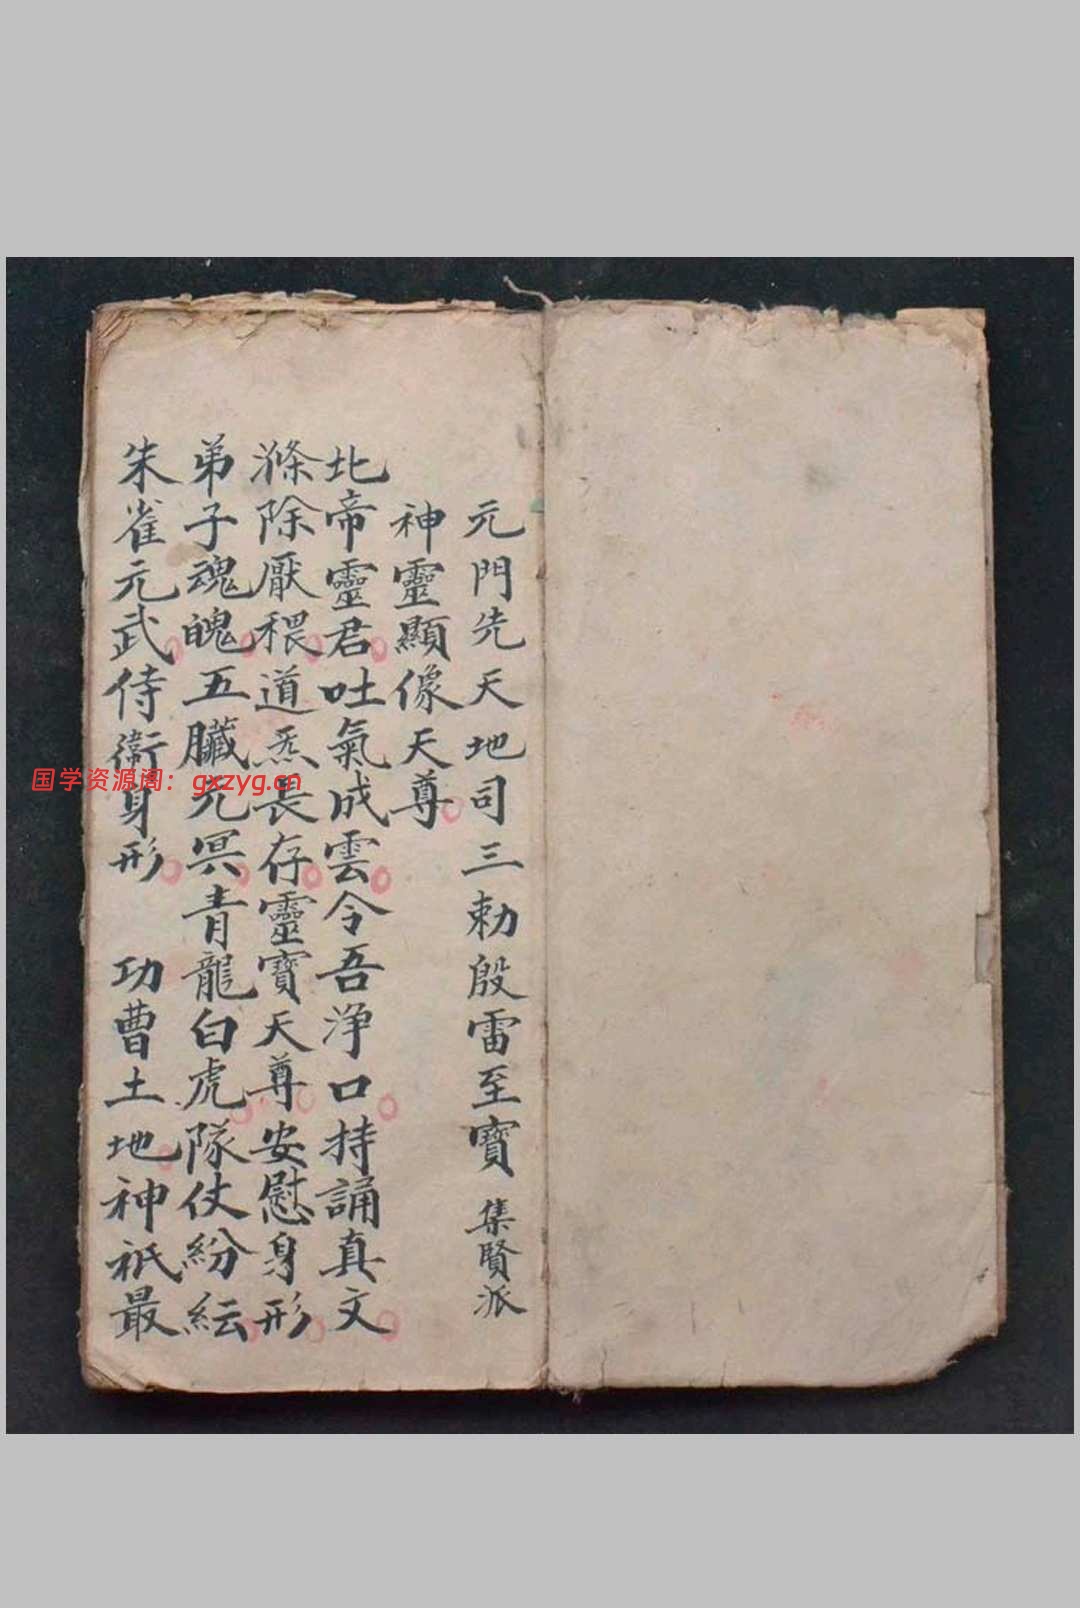 元門先天地司三勅殷雷至寶 集賢派
神靈顯像天尊
北帝靈君吐氣成雲令吾淨口持誦真文
滌除厭穢道炁長存靈寶天尊安慰身形
弟子魂魄五臟元冥青龍白虎隊仗紛紜
朱雀元武侍衛身形 功曹土地神祇最
国学资源阁：gxzyg.cn